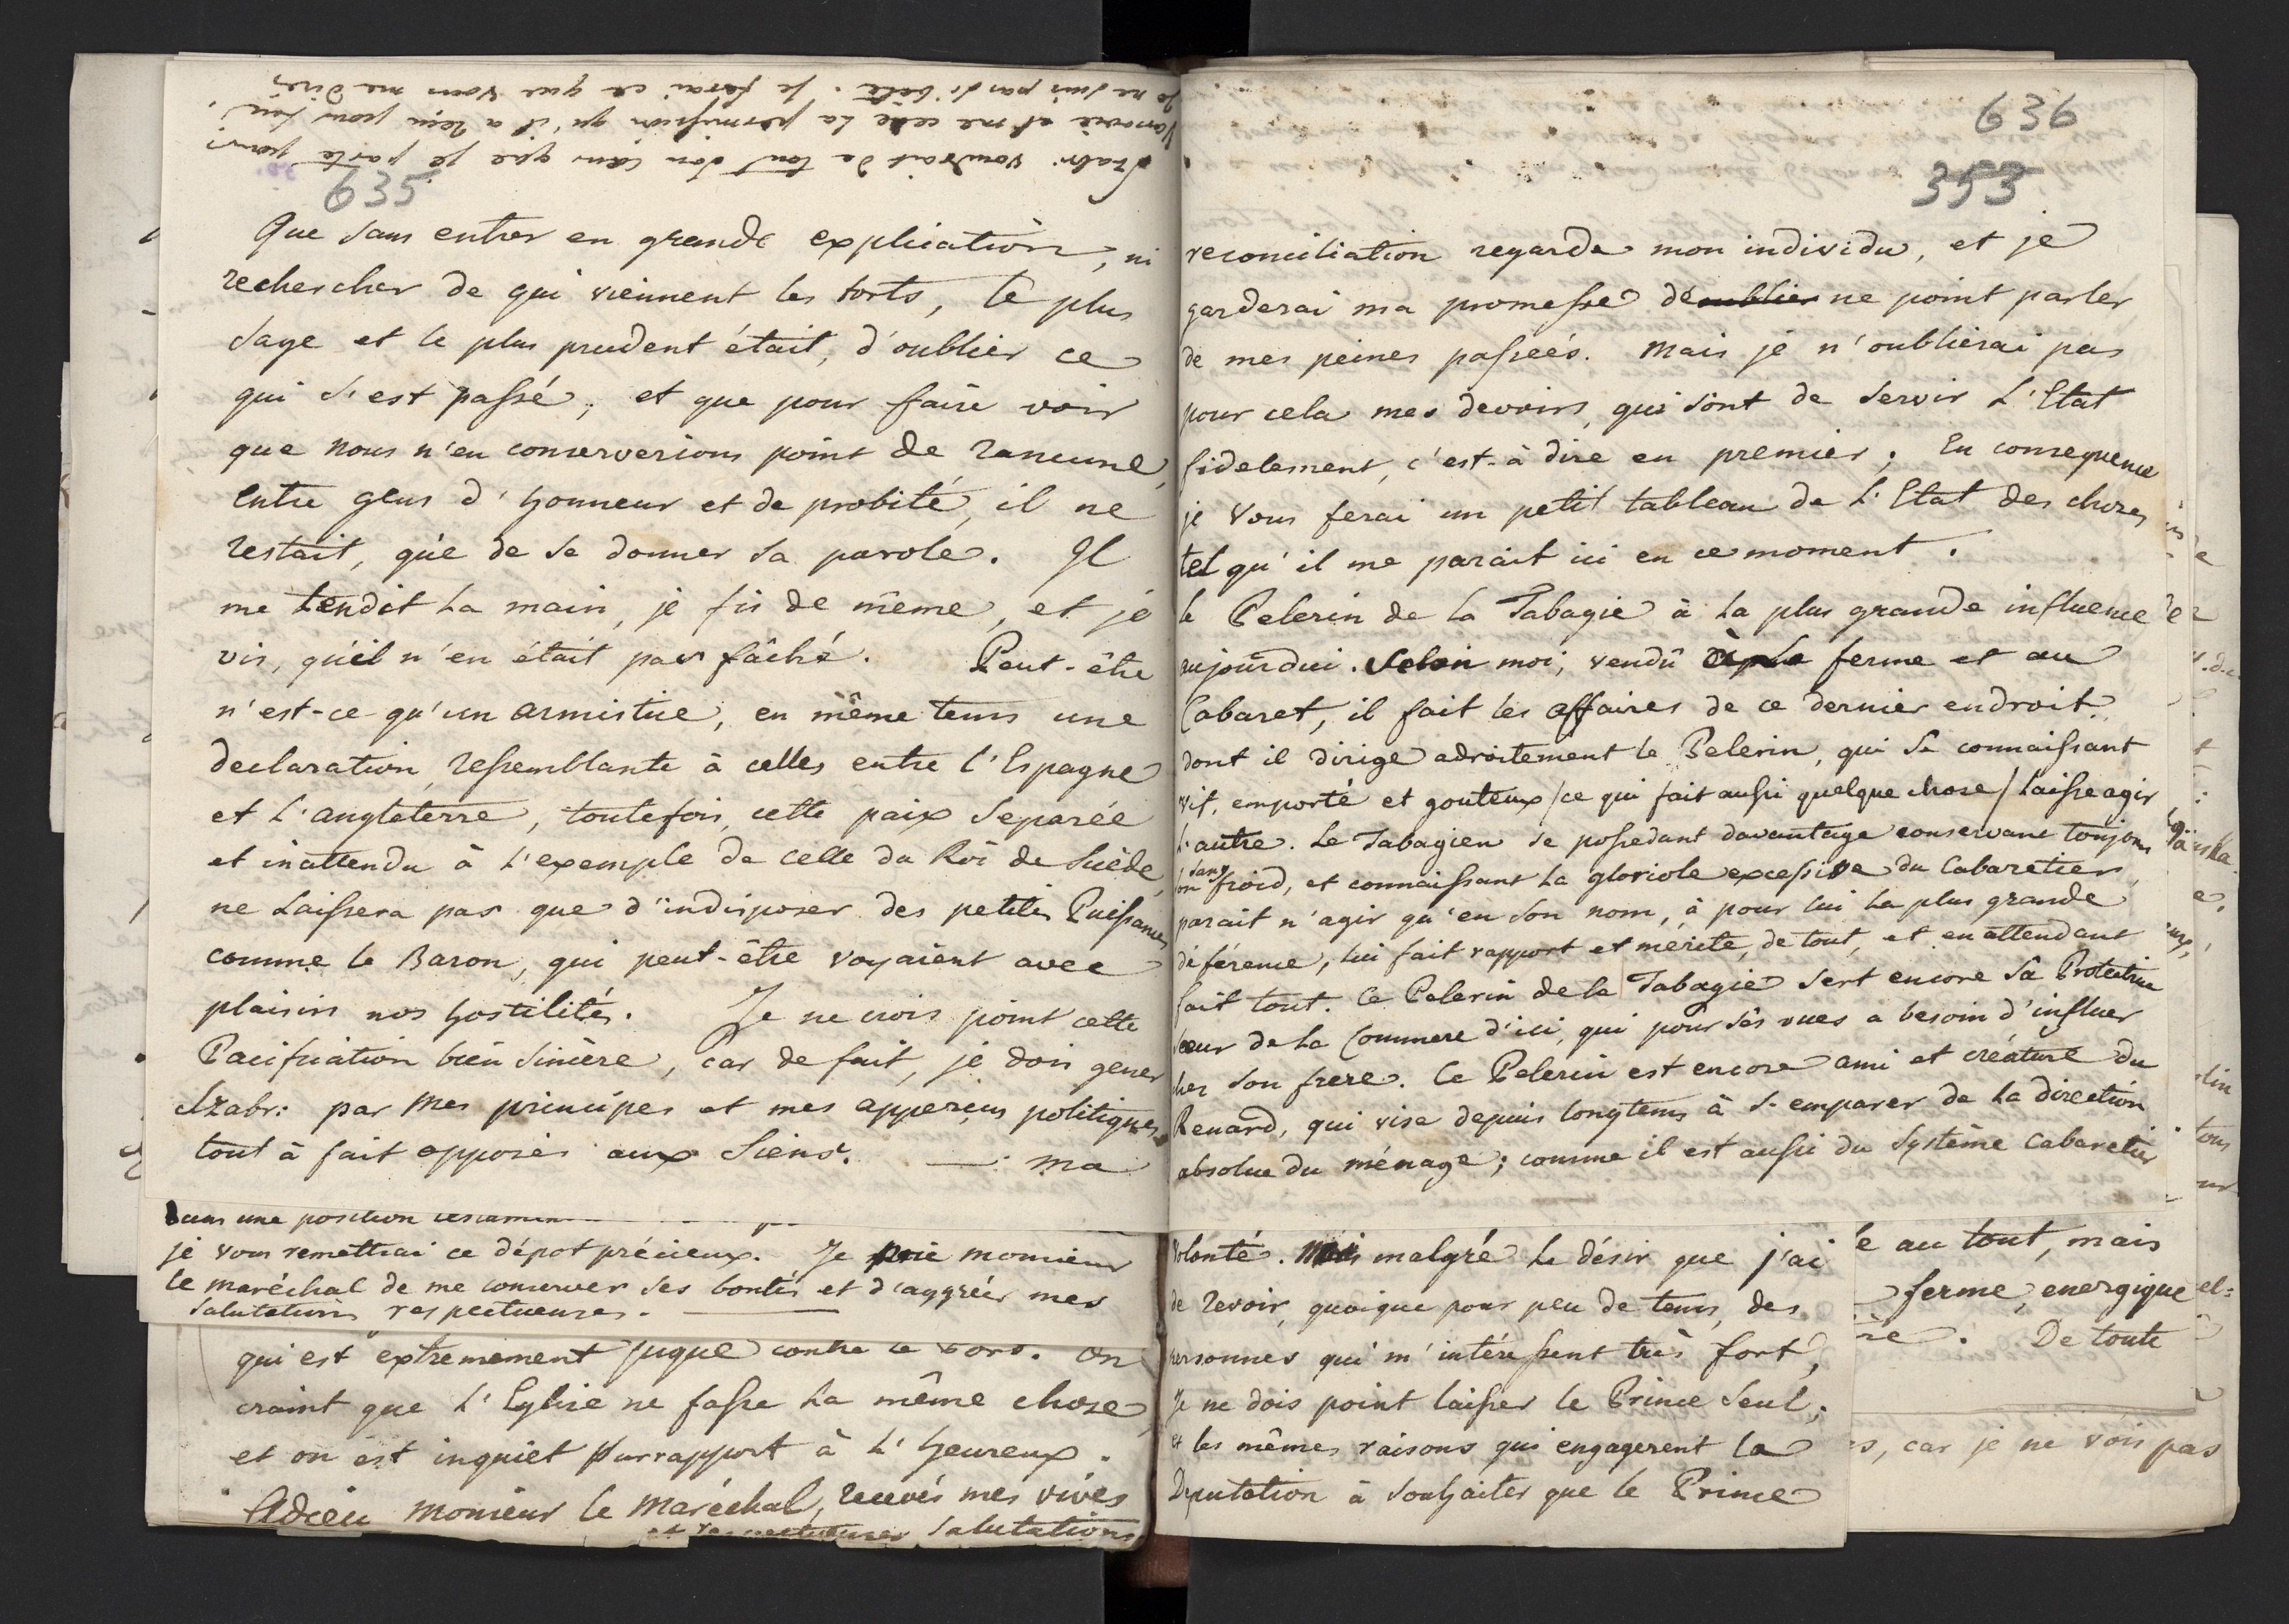 Szabr: voudrait de tout son cœur que je parte pour
Varsovie et me cède la permission qu'il a reçu pour lui
Je ne suis pas si bête. Je ferai ce que vous me dirés
635
Que sans entrer en grande explication, ni
rechercher de qui viennent les torts, le plus
sage et le plus prudent était, d'oublier ce
qui s'est passé, et que pour faire voir
que nous n'en conserverions point de rancune,
entre gens d'honneur et de probité, il ne
restait, que de se donner sa parole. Il
me tendit la main, je fis de même, et je
vis, qu'il n'en était pas fâché. Peut-être
n'est-ce qu'un armistice, en même tems une
declaration, ressemblante à celles entre l'Espagne
et l'angleterre, toutefois, cette paix separée
et inattendu à l'exemple de celle du Roi de Suède,
ne laissera pas que d'indisposer des petites Puissances
comme le Baron, qui peut-être voyaient avec
plaisirs nos hostilités. Je ne crois point cette
Pacification bien sincère, car de fait, je dois gener
Szabr: par mes principes et mes apperçus politiques
tout à fait opposés aux siens. — ma
dans une position
je vous remettrai ce dépot précieux. Je prie monsieur
le maréchal de me conserver ses bontés et d'aggréér mes
salutations respectueuses.
qui est extremement piqué contre le . On
craint que l'Eglise ne fasse la même chose,
et on est inquiet par rapport à l'heureux.
Adieu monsieur le maréchal, recevés mes vives
et respectueuses salutations
636
353
reconciliation regarde mon individu, et je
garderai ma promesse de oublier ne point parler
de mes peines passeés. Mais je n'oublierai pas
pour cela mes devoirs, qui sont de servir l'Etat
fidelement, c'est-à dire en premier; En consequence
je vous ferai un petit tableau de l'Etat des choses
tel qu'il me parait ici en ce moment.
le Pelerin de la Tabagie à la plus grande influence
aujourdui. Selon moi, vendû à la ferme et au
Cabaret, il fait les affaires de ce dernier endroit
dont il dirige adroitement le Pelerin, qui se connaissant
vif, emporté et gouteux /ce qui fait aussi quelque chose/ laisse agir
l'autre. Le Tabagien se possedant davantage conservant toujours
son sang froid, et connaissant la gloriole excessive du Cabaretier,
parait n'agir qu'en son nom, à pour lui la plus grande
déférence, lui fait rapport et mérite, de tout, et en attendant
fait tout. Ce Pelerin de la Tabagie sert encore sa Protectrice
sœur de la Commere d'ici, qui pour ses vues a besoin d'influer
chez son frere. Ce Pelerin est encore ami et créature du
Renard, qui vise depuis longtems à s'emparer de la direction
absolue du ménage; comme il est aussi du Système Cabaretier
volonté. Mais malgré le désir que j'ai
de revoir, quoique pour peu de tems, des
personnes qui m'intéressent très fort,
Je ne dois point laisser le Prince seul,
et les mêmes raisons qui engagerent la
Deputation à souhaiter que le Prince
e au tout, mais
ferme, energique
. De toute
, car je ne vois pas